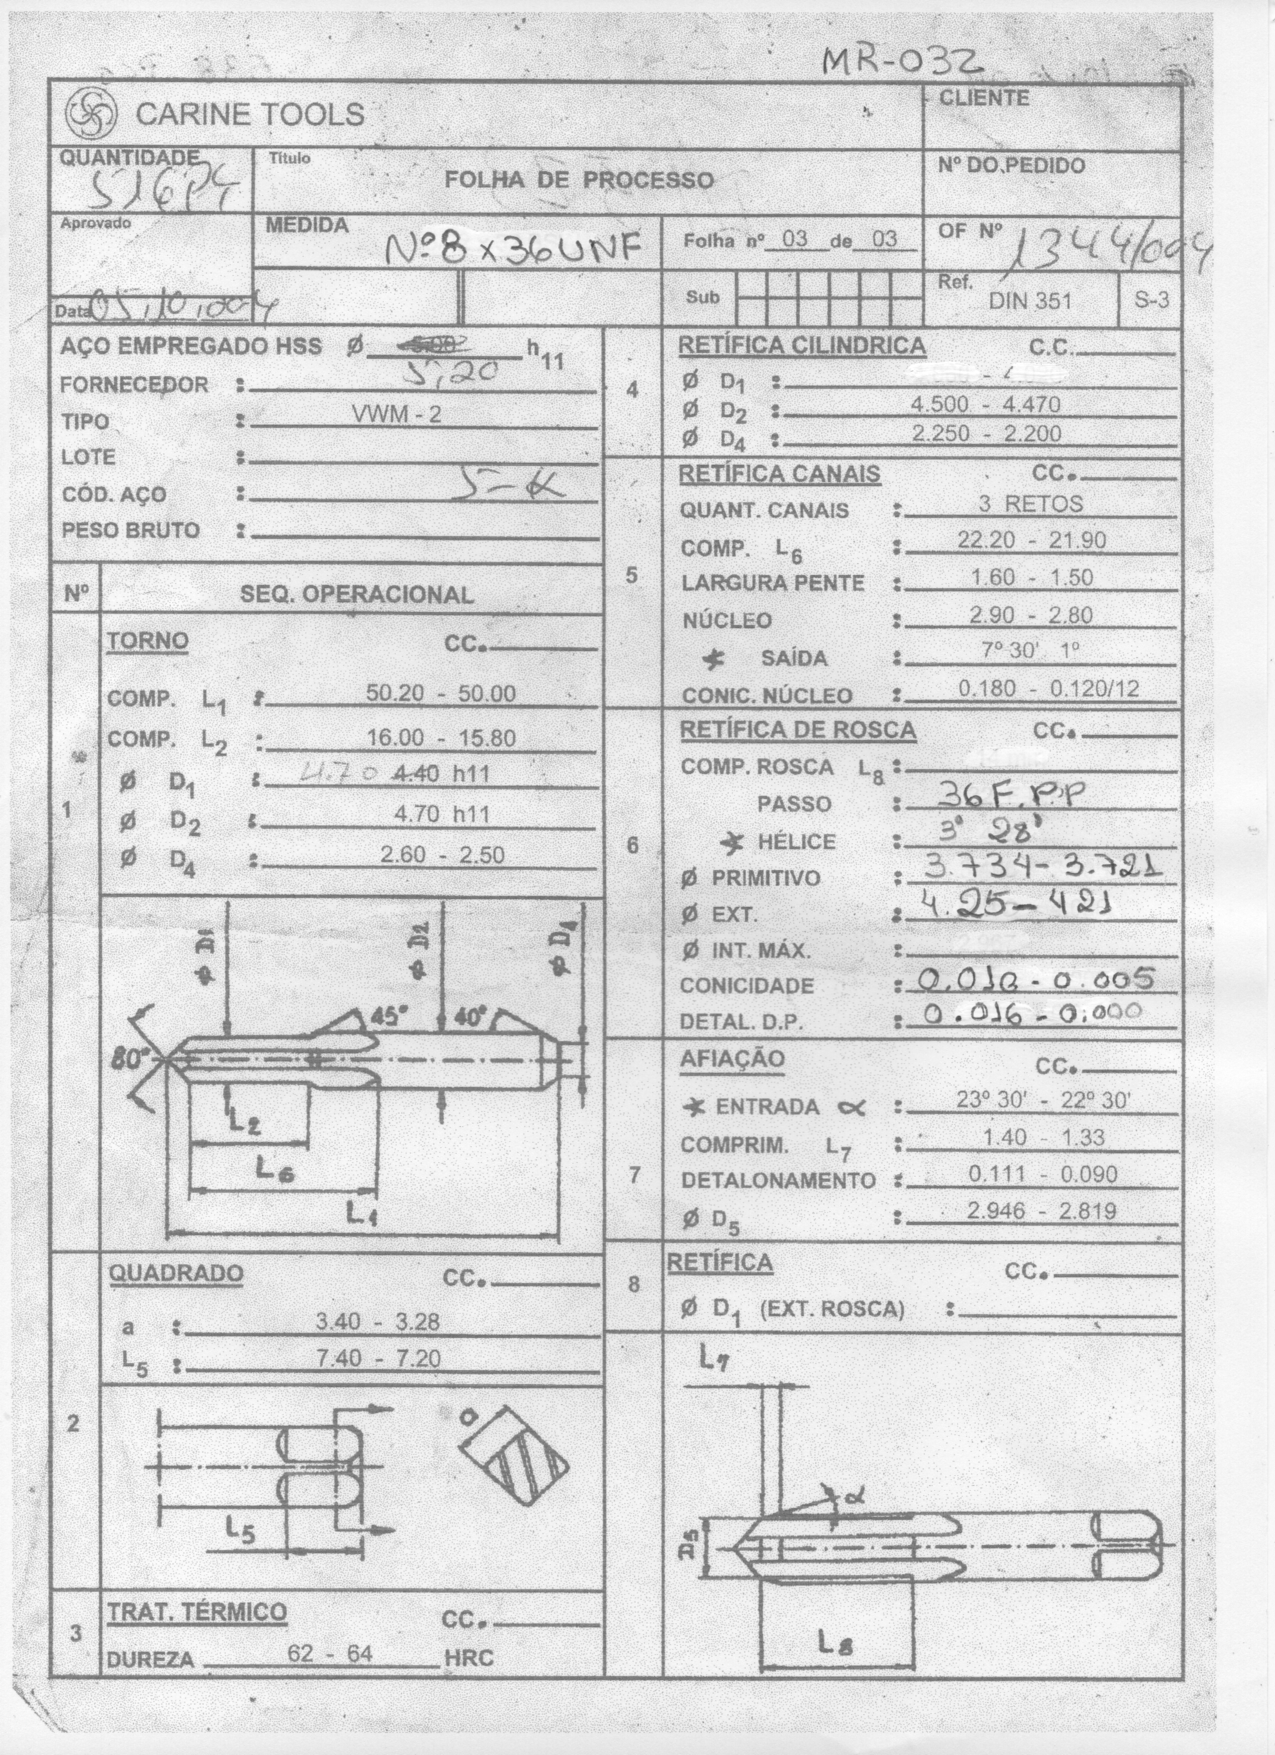 MR-032
CARINE TOOLS
CLIENTE
QUANTIDADE
Título
FOLHA DE PROCESSO
Nº DO.PEDIDO
Aprovado
MEDIDA
Nº 8 x 36 UNF
Folha nº 03 de 03
OF Nº 1344/004
Data 05.10.004
Sub
Ref.
DIN 351
S-3
AÇO EMPREGADO HSS Ø 5,20 h11
FORNECEDOR :
TIPO : VWM - 2
LOTE :
CÓD. AÇO :
PESO BRUTO :
Nº
SEQ. OPERACIONAL
1
TORNO CC.
COMP. L1 : 50.20 - 50.00
COMP. L2 : 16.00 - 15.80
Ø D1 : 4.70 4.40 h11
Ø D2 : 4.70 h11
Ø D4 : 2.60 - 2.50
Ø D1
Ø D2
Ø D4
45°
40°
80°
L2
L6
L1
2
QUADRADO CC.
a : 3.40 - 3.28
L5 : 7.40 - 7.20
a
L5
3
TRAT. TÉRMICO CC.
DUREZA 62 - 64 HRC
4
RETÍFICA CILINDRICA C.C.
Ø D1 : -
Ø D2 : 4.500 - 4.470
Ø D4 : 2.250 - 2.200
5
RETÍFICA CANAIS CC.
QUANT. CANAIS : 3 RETOS
COMP. L6 : 22.20 - 21.90
LARGURA PENTE : 1.60 - 1.50
NÚCLEO : 2.90 - 2.80
* SAÍDA : 7º 30' 1º
CONIC. NÚCLEO : 0.180 - 0.120/12
6
RETÍFICA DE ROSCA CC.
COMP. ROSCA L8 :
PASSO : 36 F.P.P
* HÉLICE : 3° 28'
Ø PRIMITIVO : 3.734 - 3.721
Ø EXT. : 4.25 - 421
Ø INT. MÁX. :
CONICIDADE : - 0.005
DETAL. D.P. : 0.016 - 0.000
7
AFIAÇÃO CC.
* ENTRADA α : 23º 30' - 22º 30'
COMPRIM. L7 : 1.40 - 1.33
DETALONAMENTO : 0.111 - 0.090
Ø D5 : 2.946 - 2.819
8
RETÍFICA CC.
Ø D1 (EXT. ROSCA) :
L7
α
D5
L8